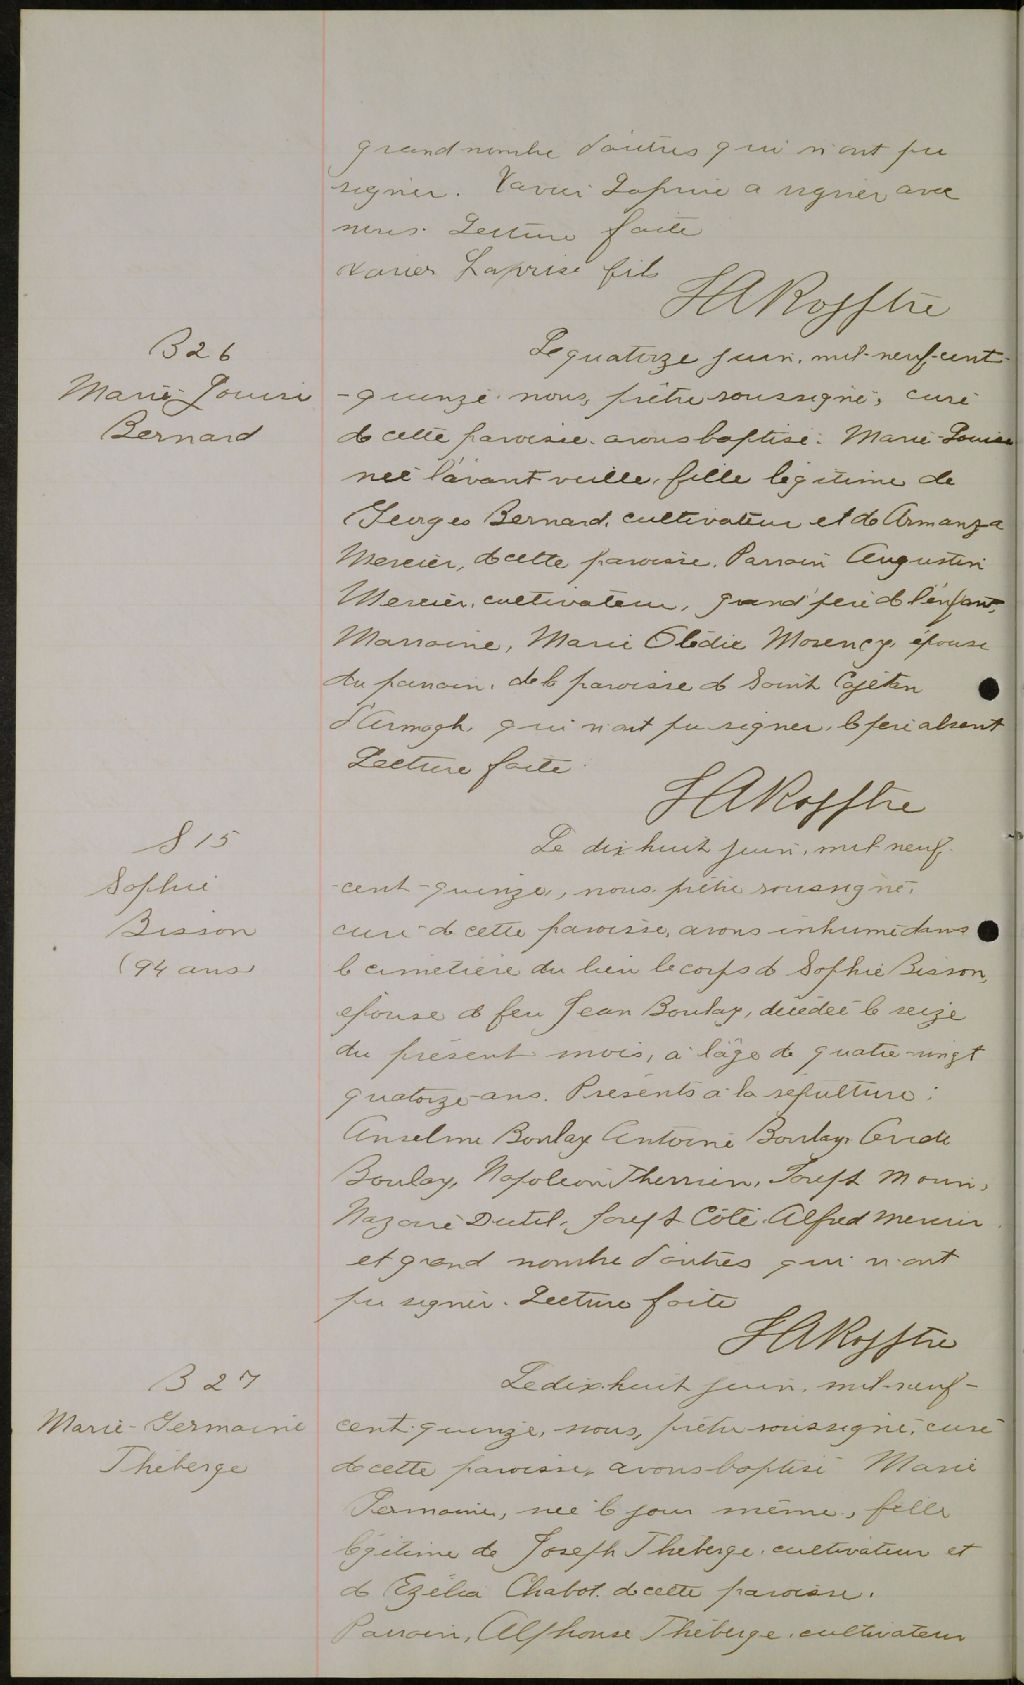 grand nombre d'autres qui n'ont pu
signer. Xavier Laprise a signer avec
nous. Lecture faite
Xavier Laprise fils
B 26
Marie-Louise
Bernard
Le quatorze juin, mil-neuf-cent-
-quinze nous, prêtre soussigné, curé
de cette paroisse avons baptisé: Marie-Louise
née l'avant veille, fille légitime de
Georges Bernard, cultivateur et de Armanza
Mercier, de cette paroisse. Parrain Augustin
Mercier, cultivateur, grand'père de l'enfant,
Marraine, Marie Morency, épouse
du parrain, de la paroisse de Saint Cajétan
d'Armagh, qui n'ont pu signer, le père absent
Lecture faite
S 15
Sophie
Bisson
(94 ans)
Le dix huit juin, mil neuf-
cent-quinze, nous prêtre soussigné,
curé de cette paroisse, avons inhumé dans
le cimetière du lieu le corps de Sophie Bisson,
épouse de feu Jean Boulay, décédée le seize
du présent mois, à l'âge de quatre-vingt
quatorze ans. Présents à la sépulture:
Anselme Boulay Antoine Boulay,
Boulay, Napoléon Therrien, Joseph
Nazaire Dutil, Joseph Côté Alfred Mercier
et grand nombre d'autres qui n'ont
pu signer. Lecture faite
B 27
Marie-Germaine
Théberge
Le dix-huit juin, mil-neuf-
cent-quinze, nous, prêtre soussigné, curé
de cette paroisse, avons baptisé Marie
Germaine, née le jour même, fille
légitime de Joseph Théberge, cultivateur et
de Ezélia Chabot de cette paroisse.
Parrain, Alphonse Théberge, cultivateur